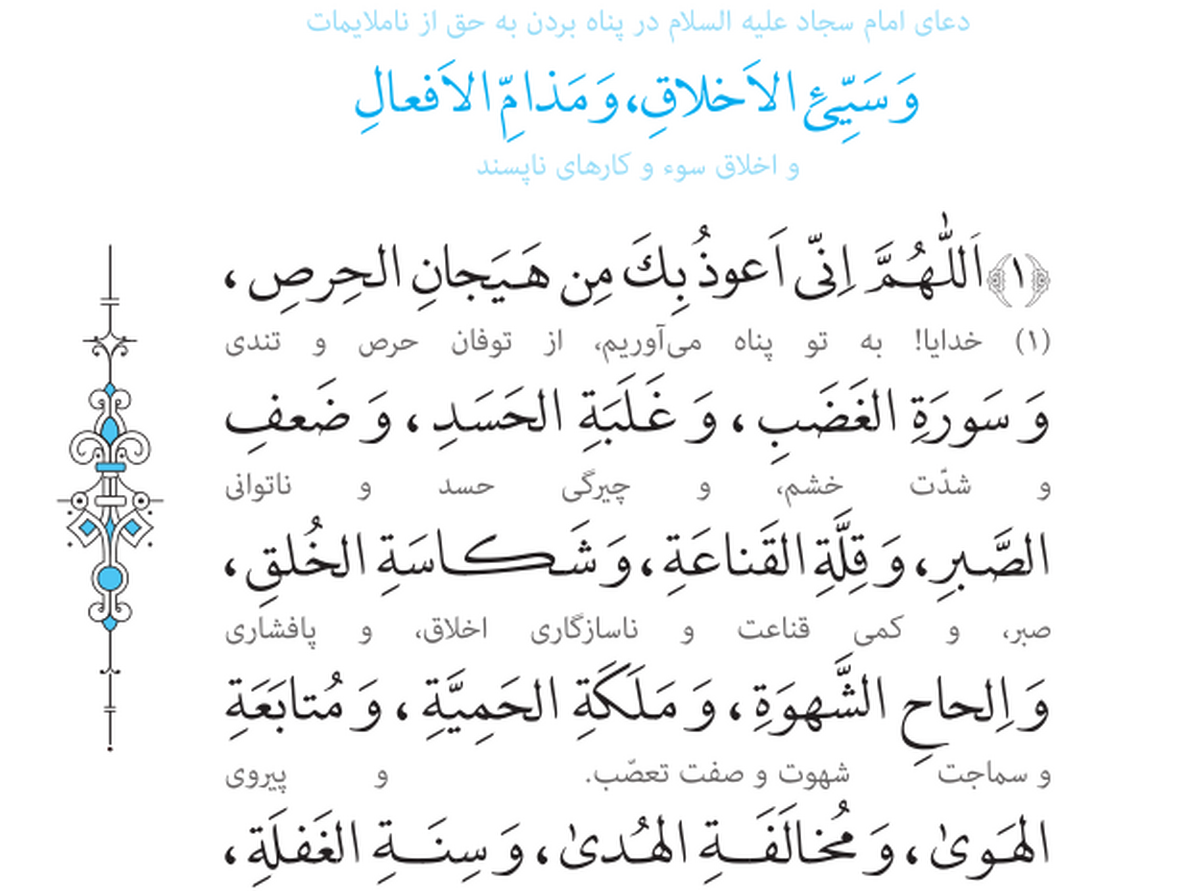 دعای امام سجاد علیه السلام در پناه بردن به حق از ناملایمات
وَ سَیِّئِ الاَخلاقِ، وَ مَذامِّ الاَفعالِ
و اخلاق سوء و کارهای ناپسند
﴿۱﴾ اَللّٰهُمَّ اِنّی اَعوذُ بِكَ مِن هَیَجانِ الحِرصِ،
(۱) خدایا! به تو پناه می‌آوریم، از توفان حرص و تندی
وَ سَورَةِ الغَضَبِ، وَ غَلَبَةِ الحَسَدِ، وَ ضَعفِ
و شدّت خشم، و چیرگی حسد و ناتوانی
الصَّبرِ، وَ قِلَّةِ القَناعَةِ، وَ شَکاسَةِ الخُلقِ،
صبر، و کمی قناعت و ناسازگاری اخلاق، و پافشاری
وَ اِلحاحِ الشَّهوَةِ، وَ مَلَكَةِ الحَمِیَّةِ، وَ مُتابَعَةِ
و سماجت شهوت و صفت تعصّب. و پیروی
الهَویٰ، وَ مُخالَفَةِ الهُدیٰ، وَ سِنَةِ الغَفلَةِ،